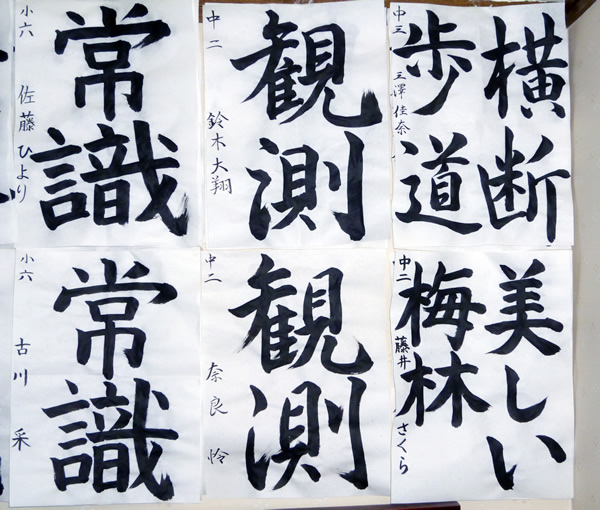 常識
小六 佐藤ひより
観測
中二 鈴木大翔
横断
歩道
中三 玉澤佳奈
常識
小六 古川采
観測
中二 奈良怜
美しい
梅林
中二 藤井さくら